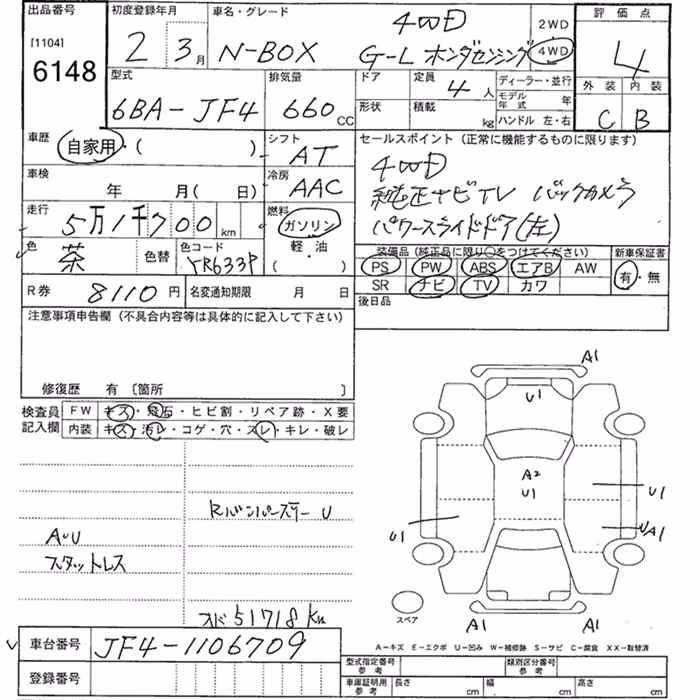 出品番号 [1104] 6148
初度登録年月 2 3月
車名・グレード N-BOX 4WD G-L ホンダセンシング
2WD 4WD
評価点 4
外装 C 内装 B
型式 6BA-JF4
排気量 660 CC
ドア 定員 4人
形状 積載 kg
ディーラー・並行
モデル年式 年
ハンドル 左・右
車歴 自家用・( )
シフト AT
車検 年 月( 日)
冷房 AAC
走行 5万1千700 km
燃料 ガソリン 軽・油 ( )
色 茶 色替 色コード YR633P
R券 8110円 名変通知期限 月 日
セールスポイント(正常に機能するものに限ります)
4WD
純正ナビTV バックカメラ
パワースライドドア(左)
装備品(純正品に限り○をつけてください) 新車保証書
PS PW ABS エアB AW 有・無
SR ナビ TV カワ
後日品
注意事項申告欄(不具合内容等は具体的に記入して下さい)
修復歴 有 〔箇所 〕
検査員記入欄 FW キズ・飛石・ヒビ割・リペア跡・X要
内装 キズ・汚レ・コゲ・穴・スレ・キレ・破レ
AUU
スタットレス
Rバンパーステー U
スド 51718km
車台番号 JF4-1106709
登録番号
A1
U1
A2
U1
U1
U1
UA1
A1
A1
スペア
A-キズ E-エクボ U-凹み W-補修跡 S-サビ C-腐食 XX-取替済
型式指定番号 参考 類別区分番号 参考
車庫証明用 参考 長さ cm 幅 cm 高さ cm